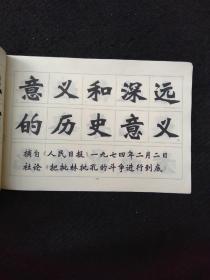 意义和深远
的历史意义
摘自《人民日报》一九七四年二月二日
社论《把批林批孔的斗争进行到底》